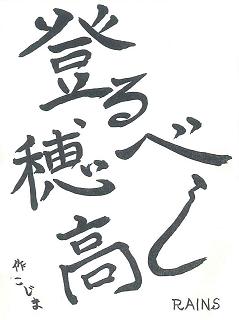 登るべし
穂高
作こじま
RAINS